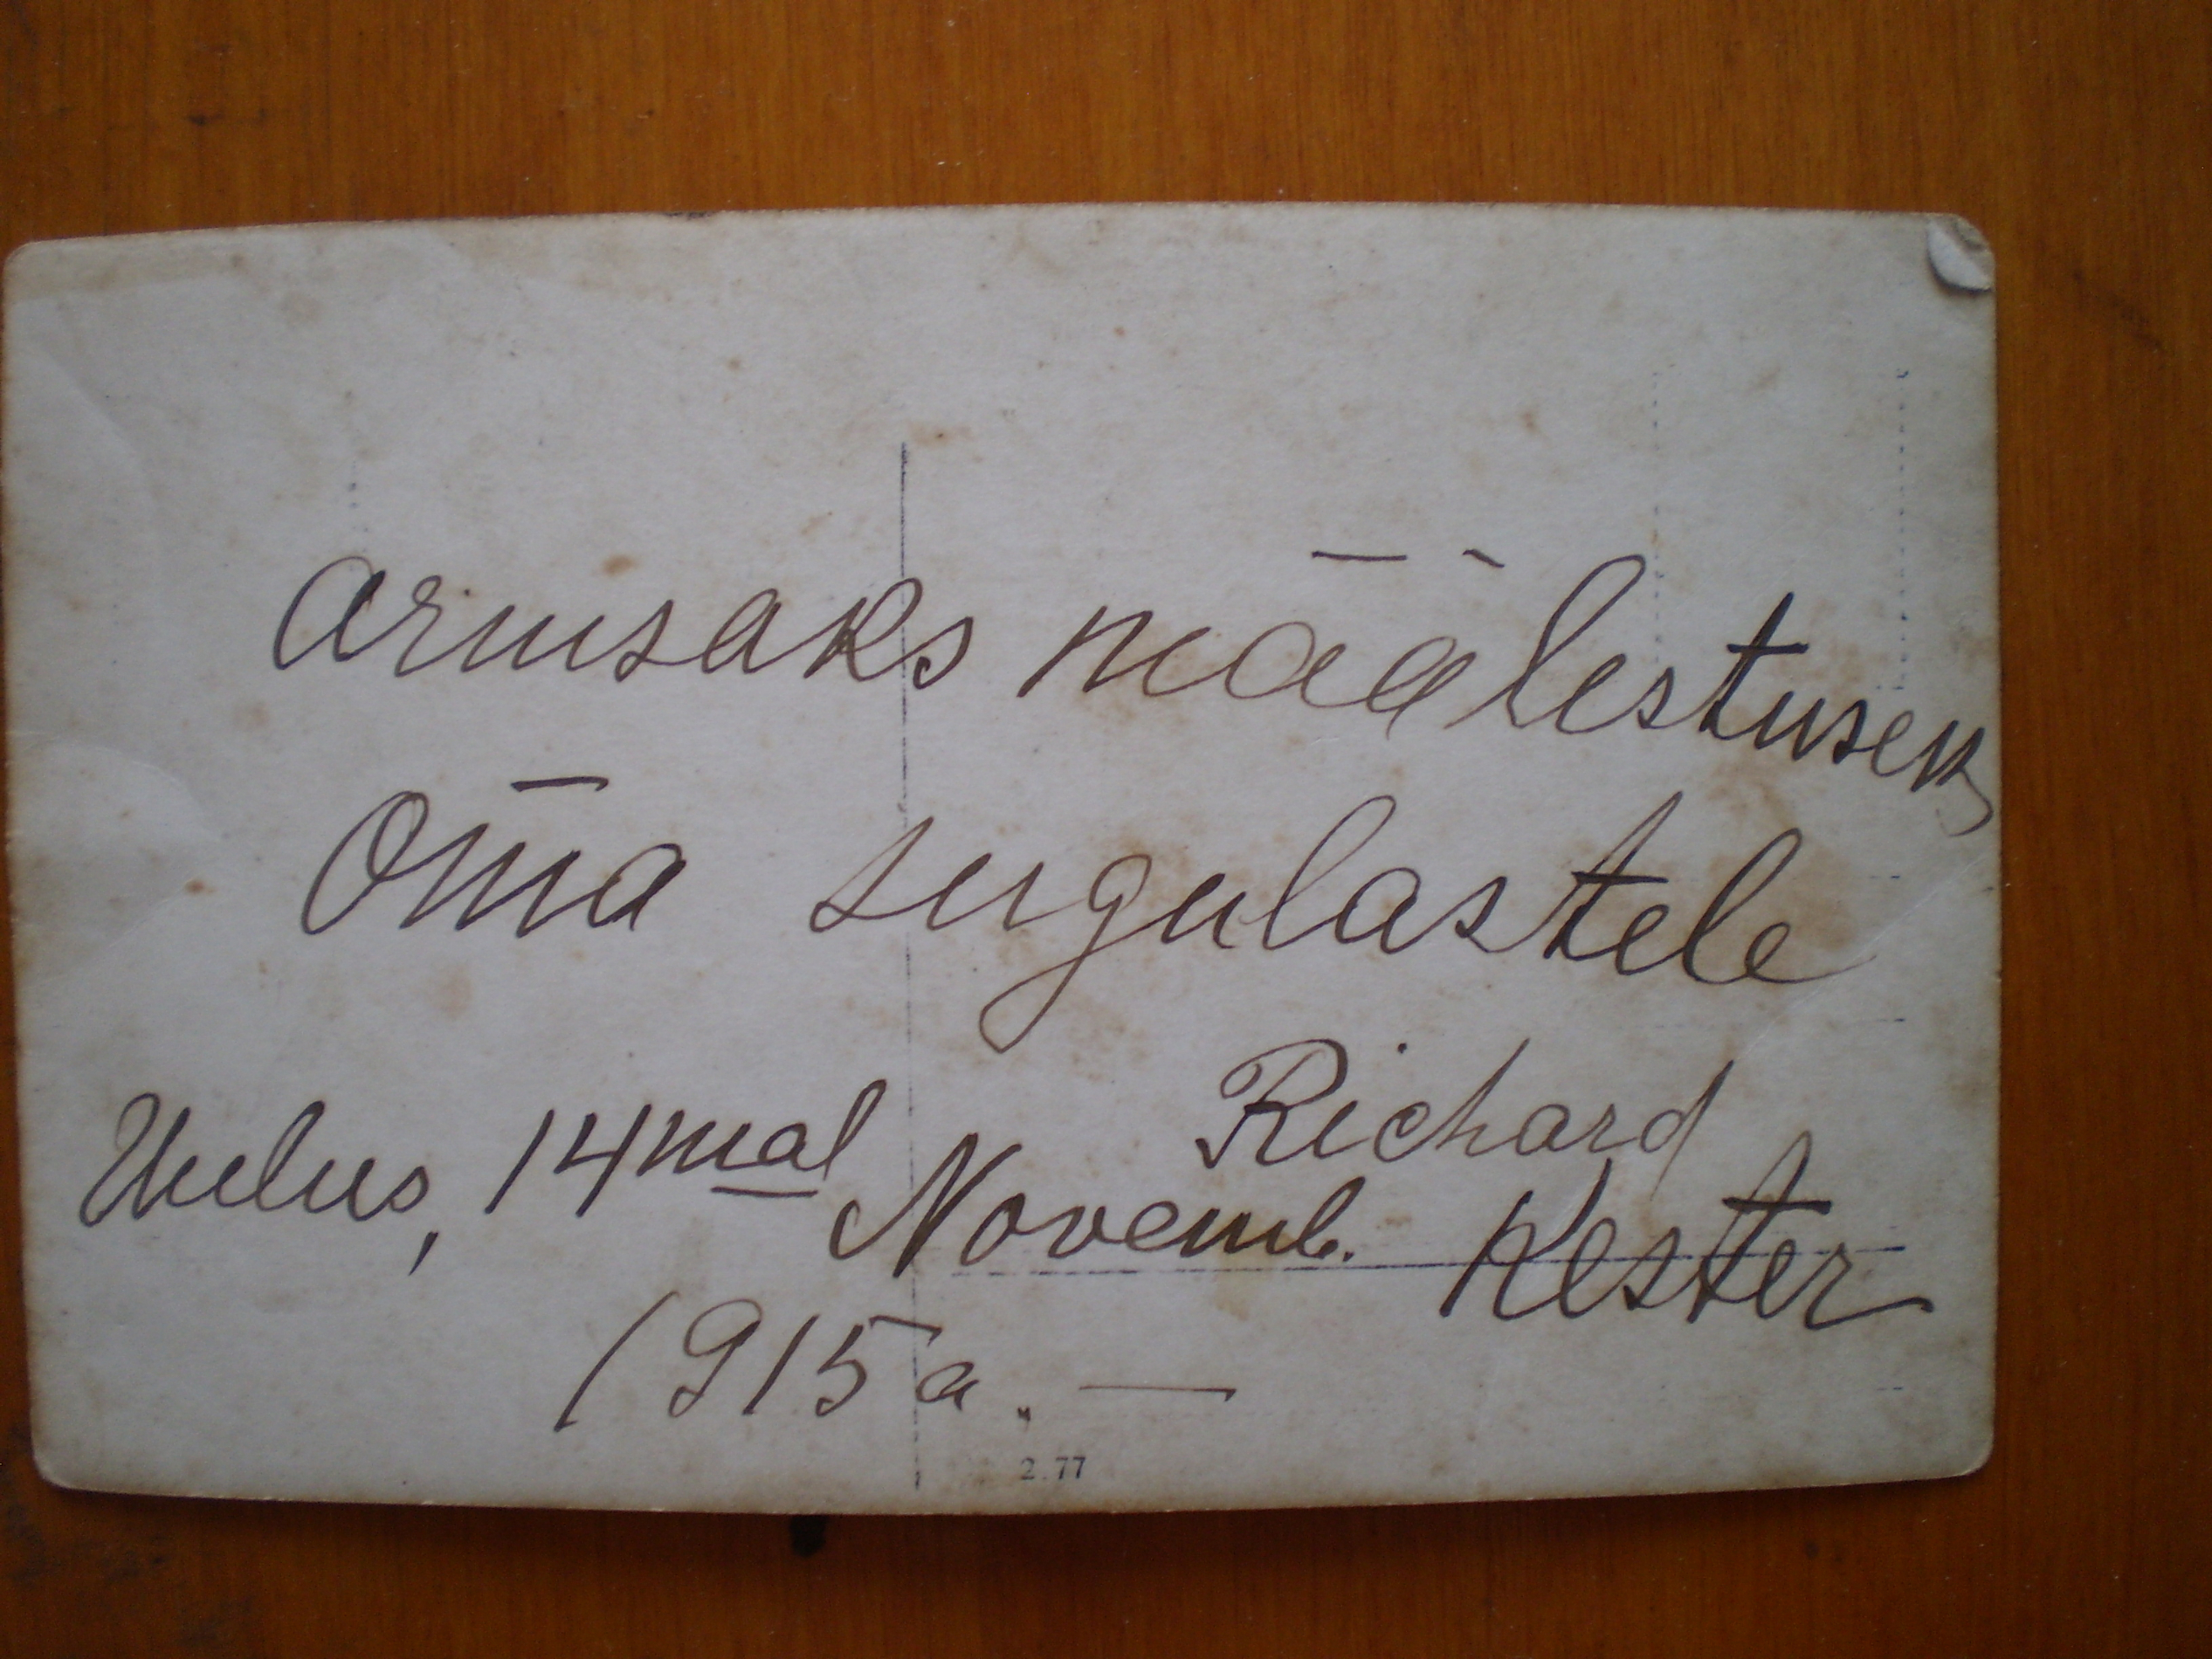 Armsaks määlestuseks
Oma sugulastele
Richard
Uulus, 14mal Novemb. Kester
1915 a. —
2.77